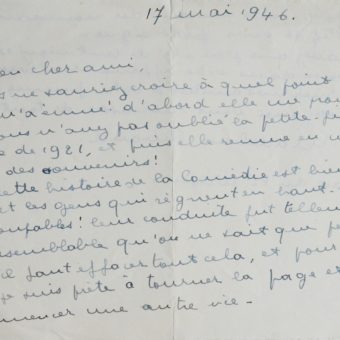 17 mai 1946.
on cher ami,
s ne sauriez croire à quel point
m'a émue! d'abord elle me prou
ous n'avez pas oublié la petite
e de 1921, et puis elle remue en
des souvenirs!
cette histoire de la Comédie est bien
et les gens qui règnent en haut
oupables! leur conduite fut tellem
semblable qu'on ne sait que pe
il faut effacer tout cela, et pour
je suis prête à tourner la page et
mencer une autre vie.